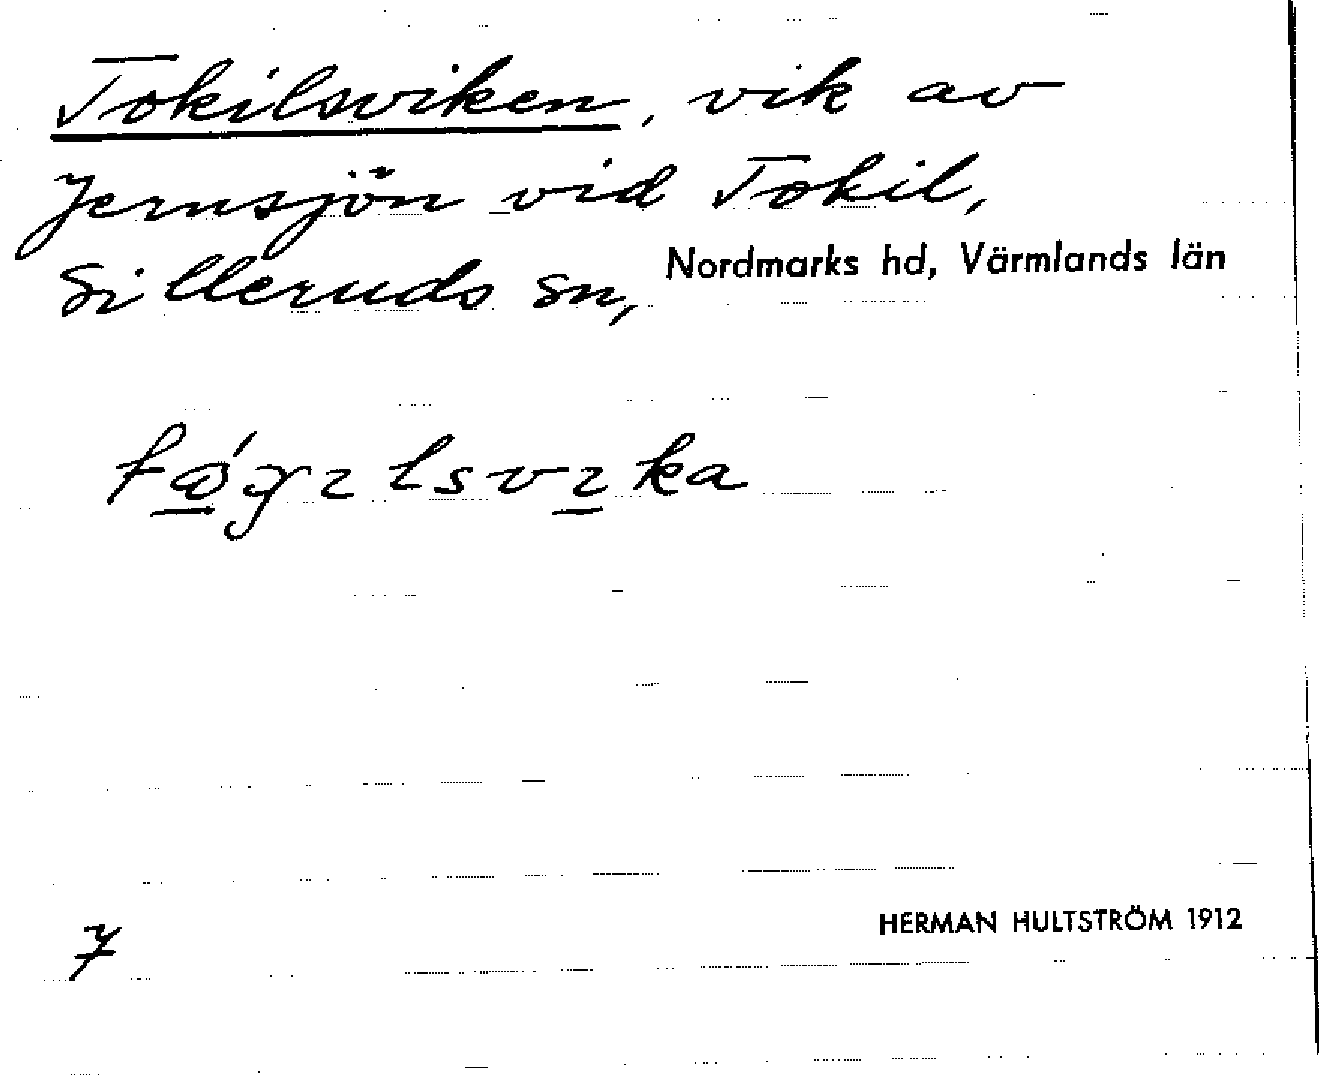 Tokilsviken, vik av
Jernsjön vid Tokil,
Silleruds sn, Nordmarks hd, Värmlands län
7
HERMAN HULTSTRÖM 1912